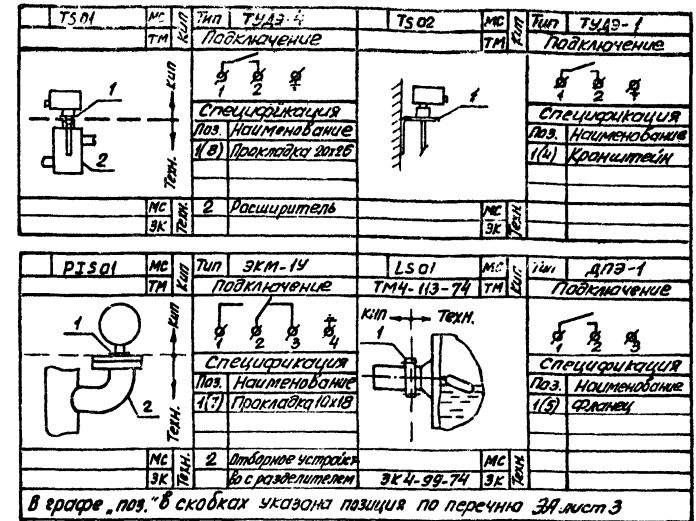 TS01 МС КИП Тип ТУДЭ-4
ТМ Подключение
1 2
КИП
Техн.
1
2
Спецификация
Поз. Наименование
1(8) Прокладка 20х26
МС Техн. 2 Расширитель
ЭК
TS02 МС КИП Тип ТУДЭ-1
ТМ Подключение
1 2
1
Спецификация
Поз. Наименование
1(4) Кронштейн
МС Техн.
ЭК
PIS01 МС КИП Тип ЭКМ-1У
ТМ Подключение
1 2 3 4
КИП
Техн.
1
2
Спецификация
Поз. Наименование
1(7) Прокладка 10х18
МС Техн. 2 Отборное устройст
ЭК во с разделителем
LS01 МС КИП Тип ДПЭ-1
ТМ4-113-74 ТМ Подключение
КИП Техн.
1
1 2 3
Спецификация
Поз. Наименование
1(5) Фланец
МС Техн.
ЭК4-99-74 ЭК
В графе „поз." в скобках указана позиция по перечню ЭА лист 3